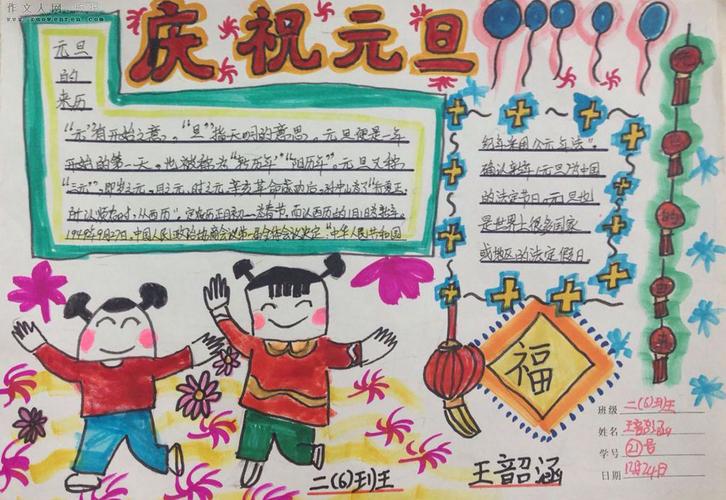 作文人网
www.zuowenren.com
庆祝元旦
元旦
的
来历
"元"有开始之意,"旦"指天明的意思。元旦便是一年
开始的第一天。也被称为"新历年""阳历年"。元旦又称
"三元",即岁之元、月之元、时之元。辛亥革命成功后,孙中山为了"行夏正,
所以顺农时,从西历",定农历正月初一为春节,而以西历的1月1日为新年。
1949年9月27日,中国人民政治协商会议第一届全体会议决定"中华人民共和国
纪年采用公元
确认新年1月1日为中国
的法定节日。元旦也
是世界上很多国家
或地区的法定假日
福
班级 二(6)班
姓名 王韶涵
学号 21号
日期 12月24日
二(6)班
王韶涵